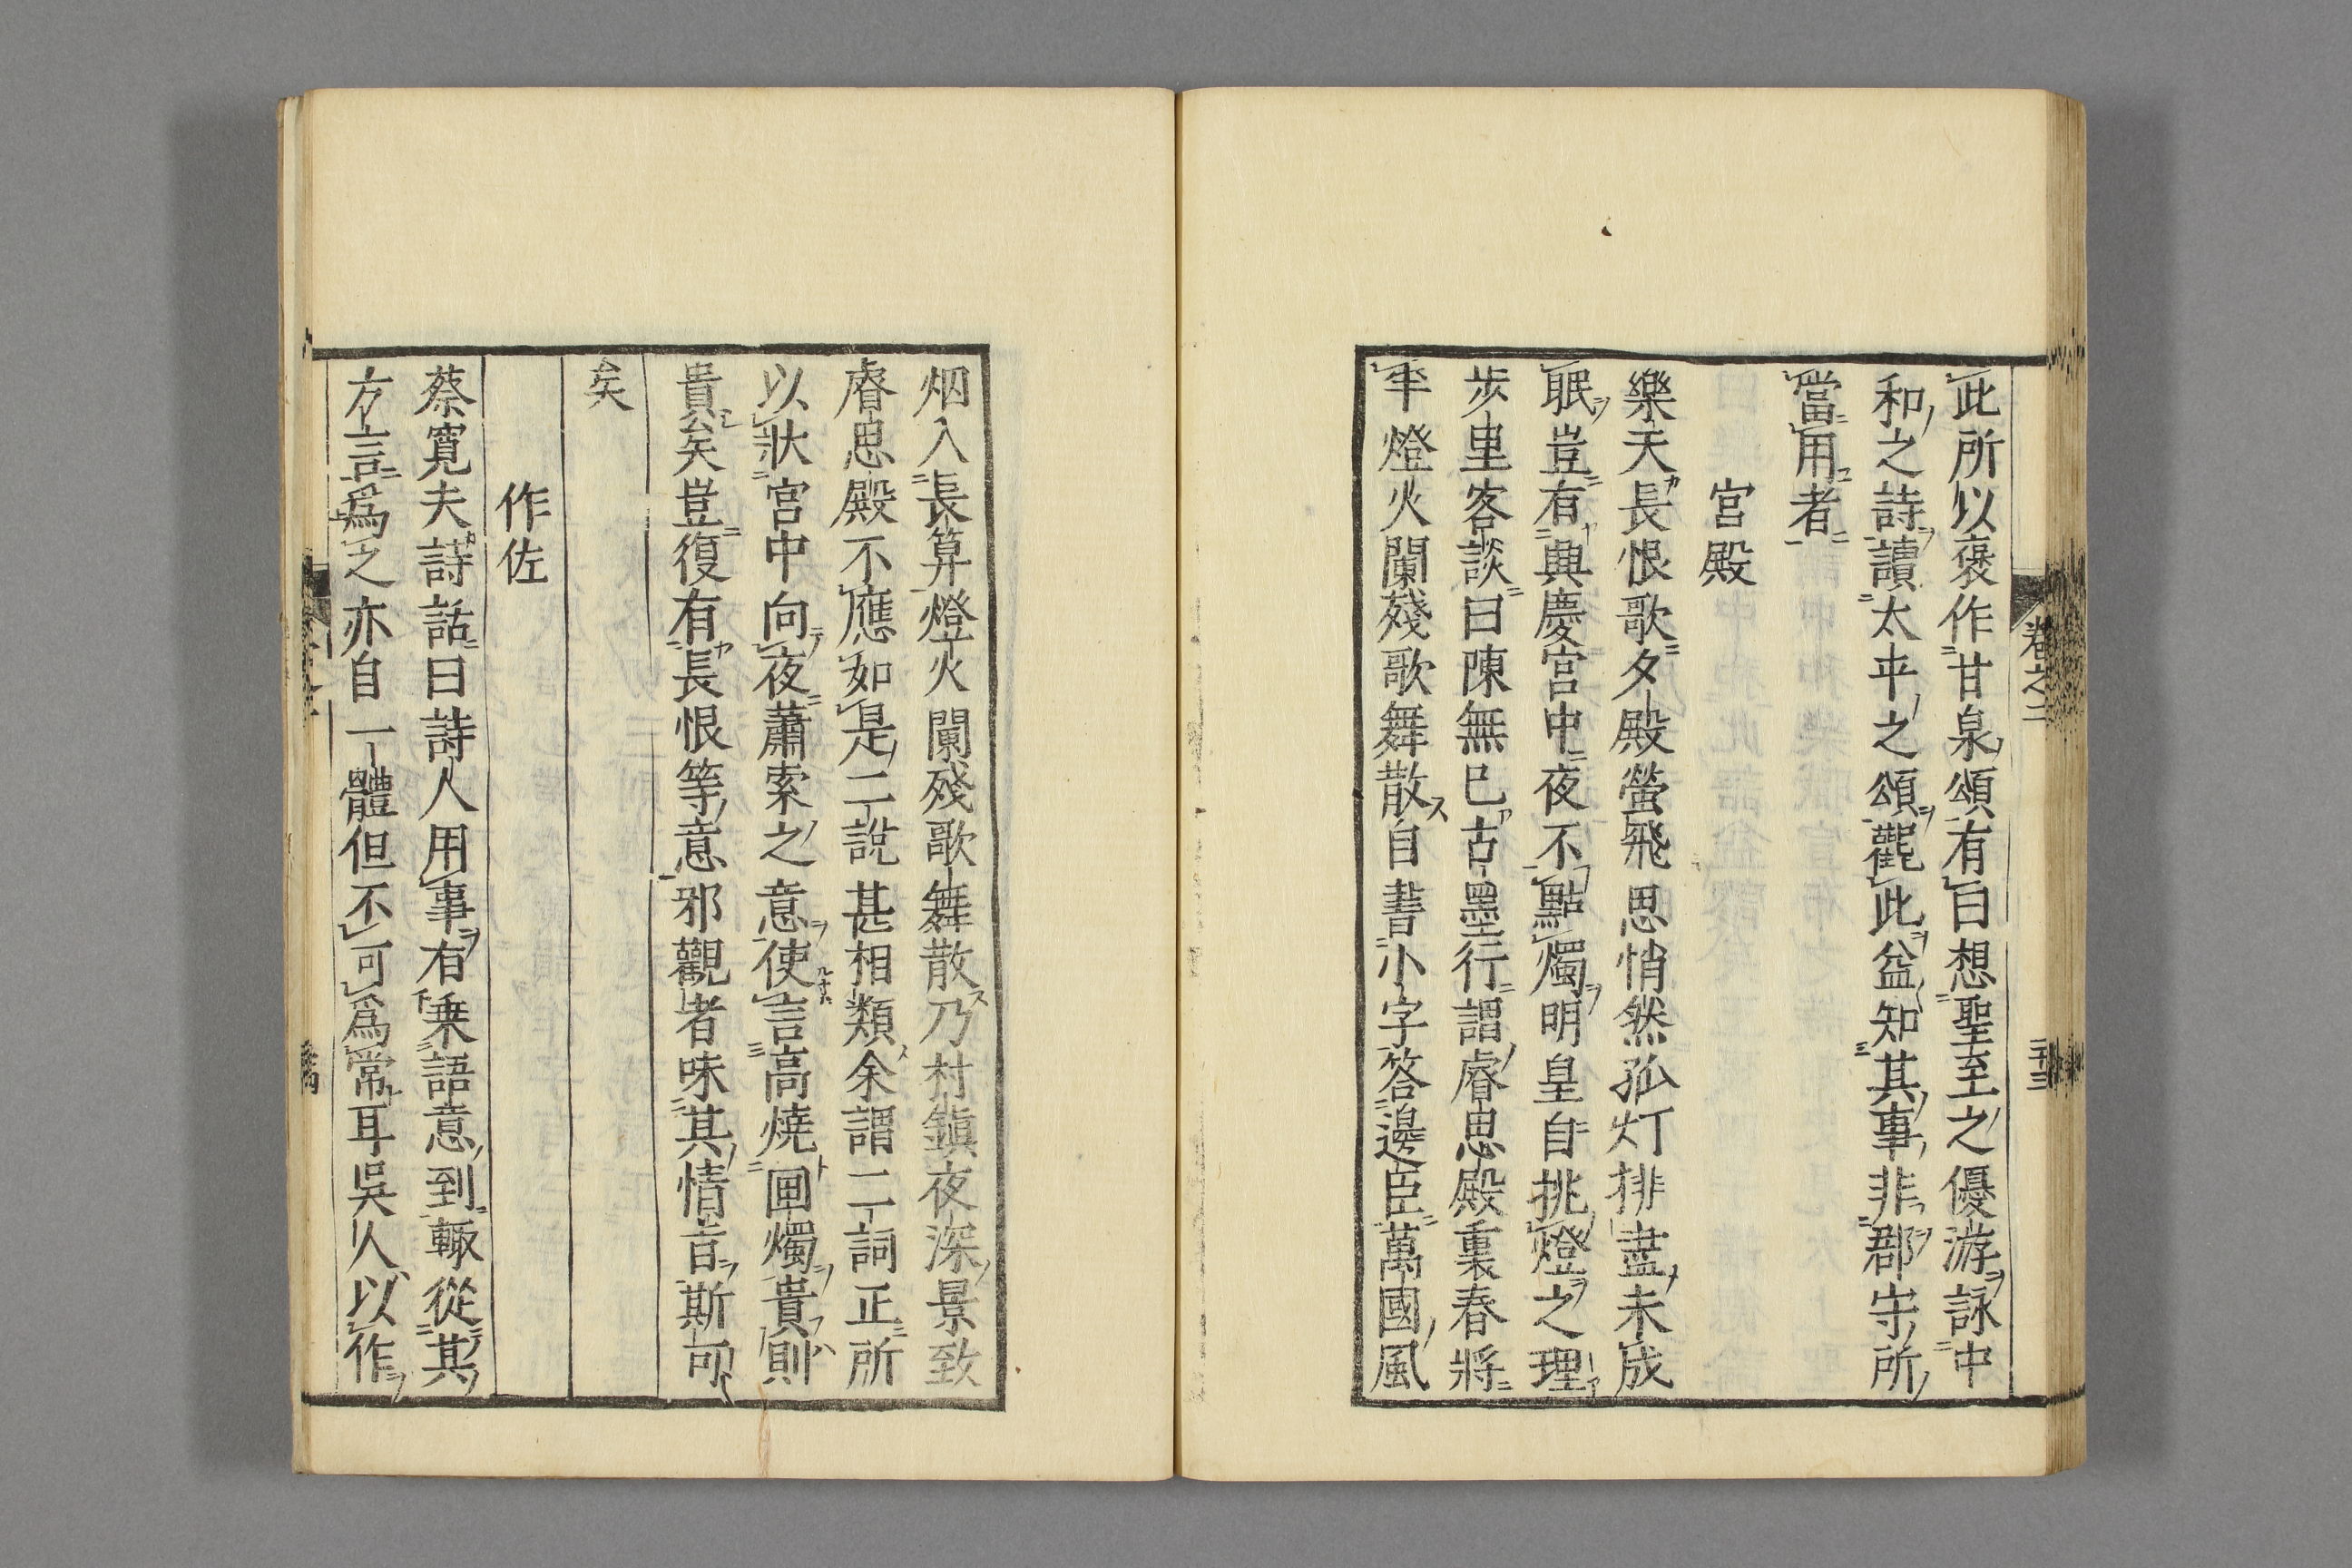 此所以褒作甘泉頌有曰想聖至之優游詠中
和之詩讀太平之頌觀此益知其事非郡守所
當用者
宮殿
樂天長恨歌夕殿螢飛思悄然孤灯排盡未成
眠豈有興慶宮中夜不點燭明皇自挑燈之理
步里客談曰陳無巳古墨行謂睿思殿裏春將
半燈火闌殘歌舞散自書小字答邊臣萬國風
烟入長算燈火闌殘歌舞散乃村鎭夜深景致
睿思殿不應如是二說甚相類余謂二詞正所
以狀宮中向夜蕭索之意使言高燒画燭貴則
貴矣豈復有長恨等意邪觀者味其情音斯可
矣
作佐
蔡寬夫詩話曰詩人用事有乗語意到輙從其
方言爲之亦自一體但不可爲常耳吳人以作
卷之二
二十三